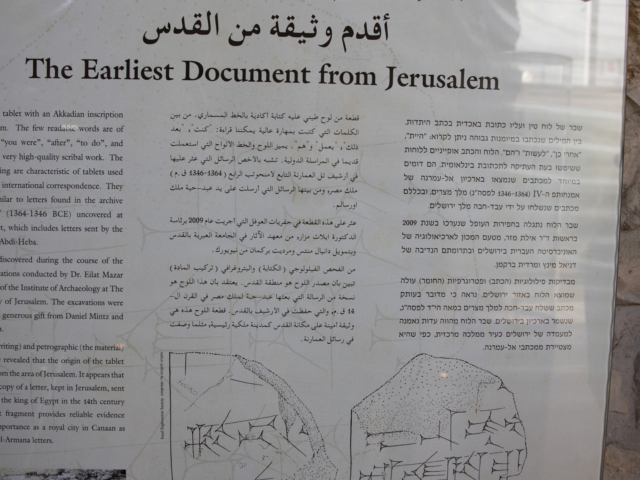 أقدم وثيقة من القدس
The Earliest Document from Jerusalem
tablet with an Akkadian inscription
m. The few readable words are of
"you were", "after", "to do", and
very high-quality scribal work. The
ing are characteristic of tablets used
international correspondence. They
milar to letters found in the archive
V (1364-1346 BCE) uncovered at
t, which includes letters sent by the
Abdi-Heba.
discovered during the course of the
vations conducted by Dr. Eilat Mazar
of the Institute of Archaeology at The
y of Jerusalem. The excavations were
generous gift from Daniel Mintz and
n.
writing) and petrographic (the material)
revealed that the origin of the tablet
om the area of Jerusalem. It appears that
copy of a letter, kept in Jerusalem, sent
the king of Egypt in the 14th century
t fragment provides reliable evidence
mportance as a royal city in Canaan as
l-Armana letters.
قطعة من لوح طيني عليه كتابة أكادية بالخط المسماري. من بين
الكلمات التي كتبت بمهارة عالية يمكننا قراءة: "كنت"، "بعد
ذلك"، "يعمل" و"هم". يميز اللوح والخط الألواح التي استعملت
قديما في المراسلة الدولية. تشبه بالأخص الرسائل التي عثر عليها
في ارشيف تل العمارنة التابع لامنحوتب الرابع (1364-1346 ق.م)
ملك مصر، ومن بينها الرسائل التي أرسلت على يد عبد-حبة ملك
اورسالم.
عثر على هذه القطعة في حفريات العوفل التي أجريت عام 2009 برئاسة
الدكتورة ايلات مزار من معهد الآثار في الجامعة العبرية بالقدس
وبتمويل دانيال منتس ومرديت بركمان من نيويورك.
من الفحص الفيلولوجي (الكتابة) والبتروغرافي (تركيب المادة)
تبين بأن مصدر اللوح هو منطقة القدس. يعتقد بان هذا اللوح هو
نسخة من الرسالة التي بعثها عبد-حبة لملك مصر في القرن الـ-
14 ق.م والتي حفظت في الارشيف بالقدس. قطعة اللوح هذه هي
وثيقة أمينة على مكانة القدس كمدينة ملكية رئيسية، مثلما وصفت
في رسائل العمارنة.
שבר של לוח טין ועליו כתובת באכדית בכתב היתדות.
בין המילים שנכתבו במיומנות גבוהה ניתן לקרוא: "היית",
"אחר כך", "לעשות" ו"הם". הלוח והכתב אופייניים ללוחות
ששימשו בעת העתיקה לתכתובת בינלאומית. הם דומים
במיוחד למכתבים שנמצאו בארכיון אל-עמרנה של
אמנחותפ ה-IV (1346-1364 לפסה"נ) מלך מצרים, ובכללם
מכתבים שנשלחו על ידי עבד-חבה מלך ירושלים.
שבר הלוח נתגלה בחפירות העופל שנערכו בשנת 2009
בראשות ד"ר אילת מזר, מטעם המכון לארכיאולוגיה של
האוניברסיטה העברית בירושלים ובתרומתם הנדיבה של
דניאל מינץ ומרדית ברקמן.
מבדיקות פילולוגיות (הכתב) ופטרוגרפיות (החומר) עולה
שמוצא הלוח באזור ירושלים. נראה כי מדובר בעותק
מכתב ששלח עבד-חבה למלך מצרים במאה הי"ד לפסה"נ,
שנשמר בארכיון בירושלים. שבר הלוח מהווה עדות נאמנה
למעמדה של ירושלים כעיר ממלכה מרכזית, כפי שהיא
מצטיירת ממכתבי אל-עמרנה.